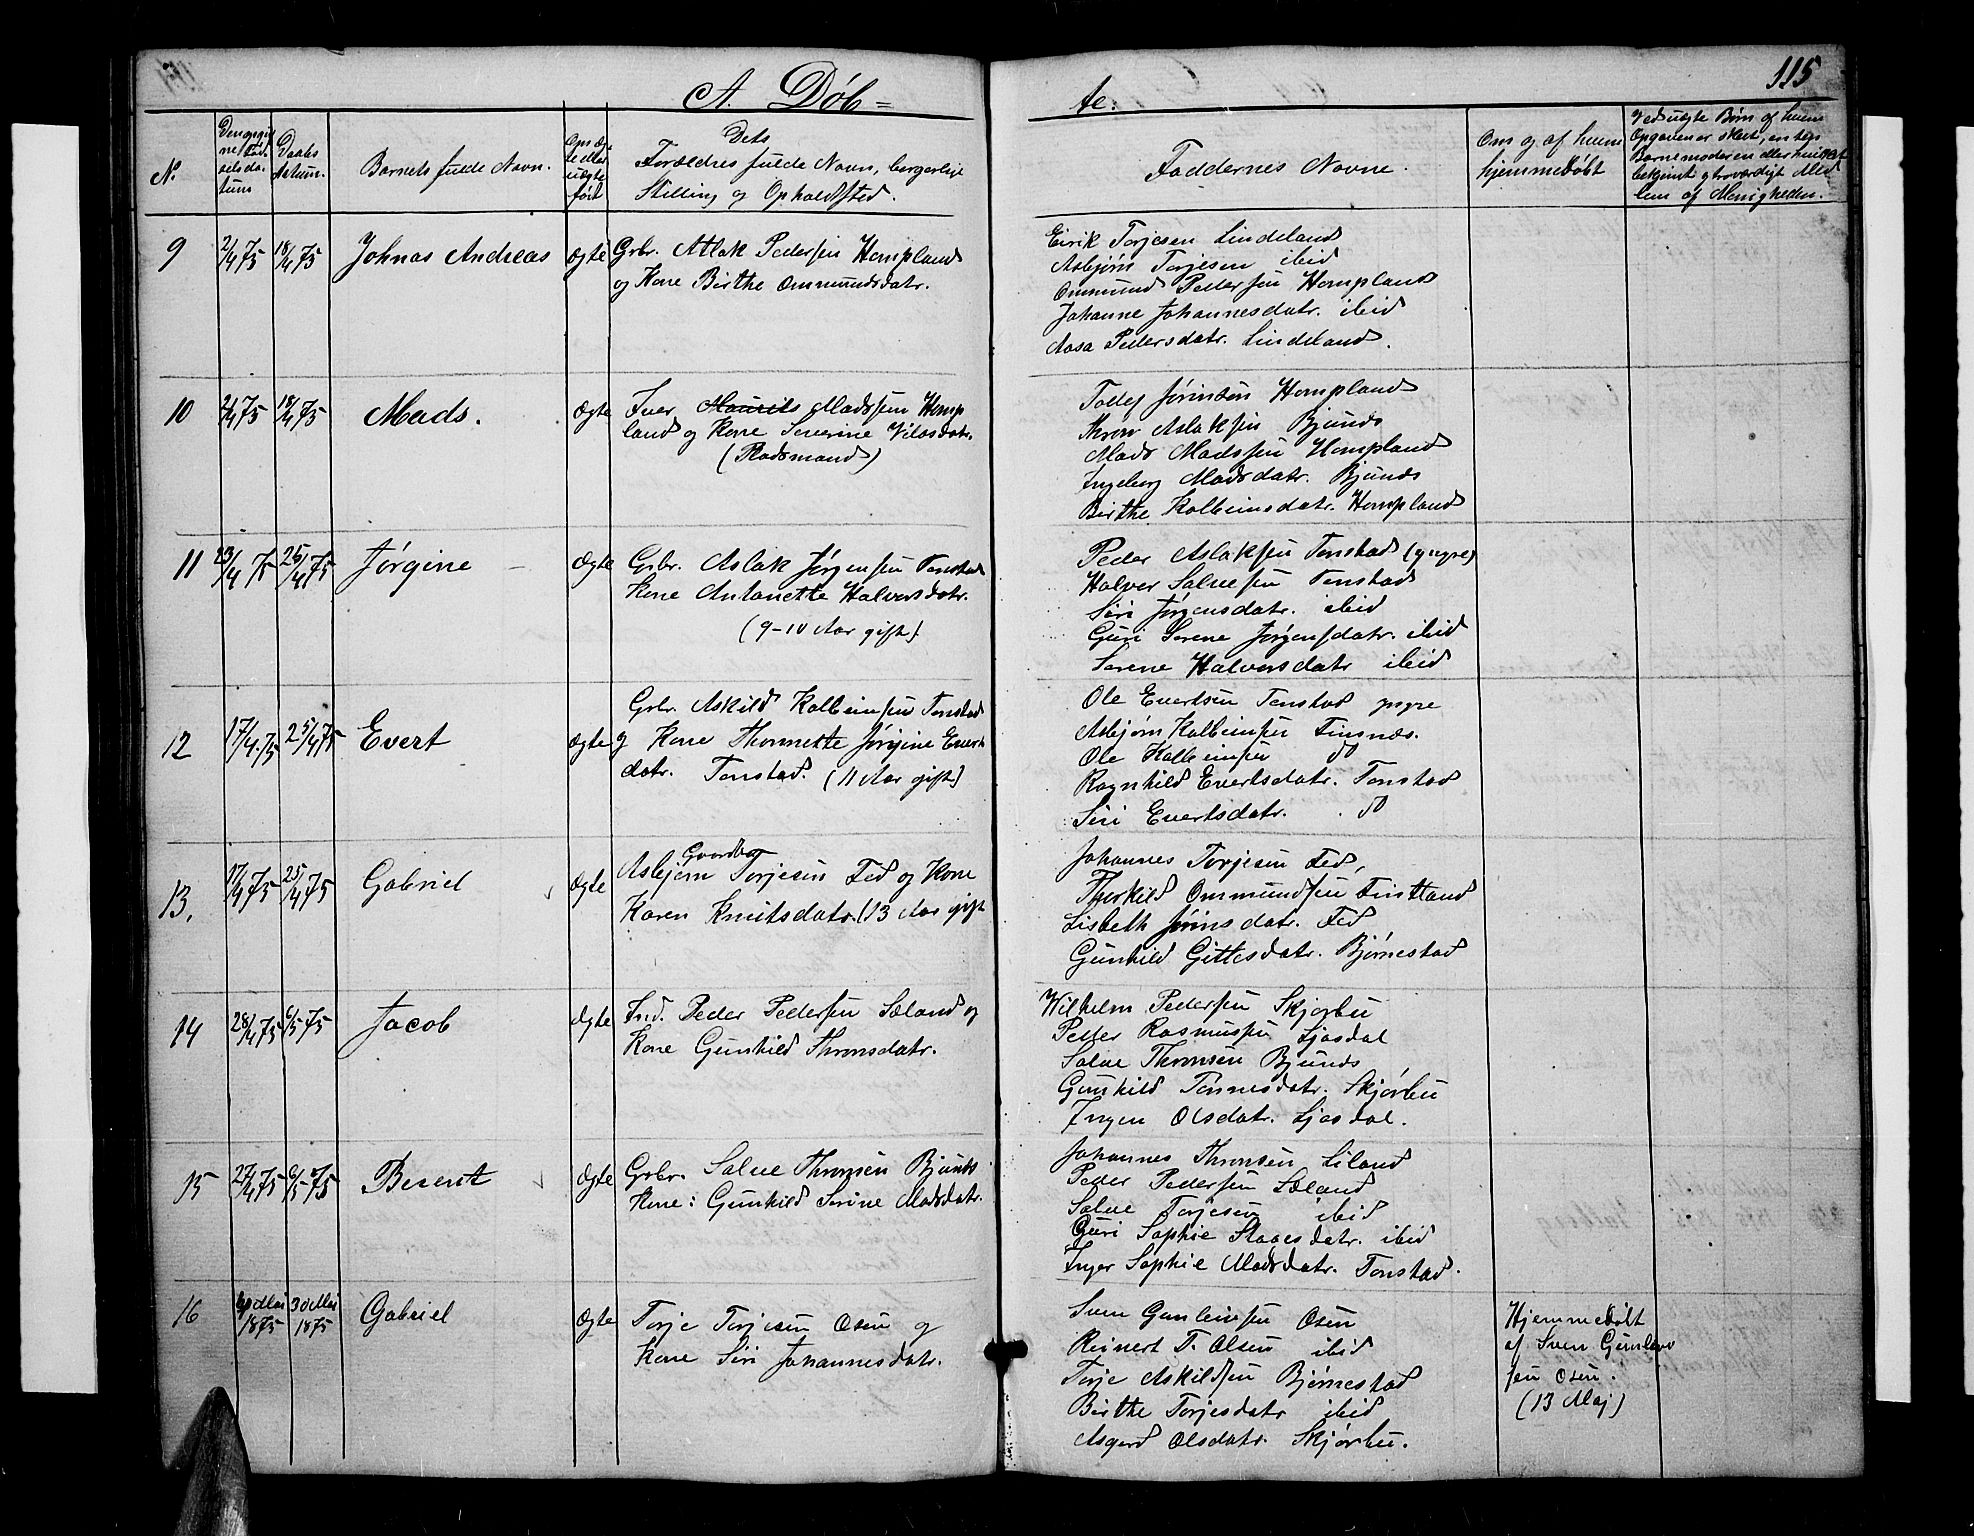 115
A. Døb=
te.
N.
Den opgivne Fødselsdatum
Daabs Datum.
Barnets fulde Navn.
Om ægte eller uægte født
Dets
Forældres fulde Navn, borgerlige
Stilling og Opholdssted.
Faddernes Navne.
Om og af hvem
hjemmedøbt
Ved uægte Børn af hvem
Opgaven er skeet, enten
Barnemoderen eller
bekjendt troværdigt Med
lem af Menigheden.
9
2/4 75
18/4 75
Johnas Andreas
Ægte
Grbr. Atlak Pedersen Hompland
og Kone Birthe Ommundsdatr.
Eirik Torjesen Lindeland
Asbjørn Torjesen ibid
Ommund Pedersen Hompland
Johanne Johannesdatr. ibid
Aasa Pedersdatr. Lindeland.
10
2/4 75
18/4 75
Mads.
Ægte
Iver Maurits Madssen Homp
land og Kone Severine
(Pladsmand)
Tollef Jørinsen Hompland
Thron Aslaksen Bjunds
Mads Madssen Hompland
Ingeborg Madsdatr. Bjunds
Birthe Kolbeinsdatr. Hompland
11
23/4 75
25/4 75
Jørgine
Ægte
Grbr. Aslak Jørgensen Tonstad
Kone Antonette Halvorsdatr.
(9-10 Aar gift)
Peder Aslaksen Tonstad (yngre)
Halvor Salvesen Tonstad
Siri Jørgensdatr. ibid
Guri Serene Jørgensdatr. ibid
Serene Halvorsdatr ibid
12
17/4 75
25/4 75
Evert
Ægte
Grbr. Askild Kolbeinsen Tonstad
og Kone Thonnette Jørgine Everts
datr. Tonstad. (11 Aar gift)
Ole Evertsen Tonstad yngre
Asbjørn Kolbeinsen Finsnæs.
Ole Kolbeinsen do
Ragnhild Evertsdatr. Tonstad
Siri Evertsdatr. do
13.
17/4 75
25/4 75
Gabriel
Ægte
Gaardbr
Asbjørn Torjesen Fed og Kone
Karen Knutsdatr. (13 Aar gift
Johannes Torjesen Fed,
Therkild Ommundsen Fintland
Lisbeth Jørinsdatr. Fed
Gunhild Gittesdatr. Bjørnestad
14
28/4 75
6/5 75
Jacob
Ægte
Ind. Peder Pedersen Sæland og
Kone Gunhild Thronsdatr.
Wilhelm Pedersen Skjørbu
Peder Rasmussen Ljosdal
Salve Thronsen Bjunds
Gunhild Tønnesdatr. Skjørbu
Ingen Olsdatr. Ljosdal.
15
27/4 75
6/5 75
Berent
Ægte
Grbr. Salve Thronsen Bjunds
Kone: Gunhild Serine Madsdatr.
Johannes Thronsen Liland
Peder Pedersen Sæland
Salve Torjesen ibid
Guri Sophie Staalesdatr. ibid
Inger Sophie Madsdatr. Tonstad.
16
Mai
1875
30 Mai
1875
Gabriel
Ægte
Torje Torjesen Osen og
Kone Siri Johannesdatr.
Sven Gunleivsen Osen
Reinert T. Olsen ibid
Torje Askildsen Bjørnestad
Birthe Torjesdatr ibid
Asgerd Olsdatr. Skjørbu.
Hjemmedøbt
af Sven Gunleiv
sen Osen.
(13 Maj)